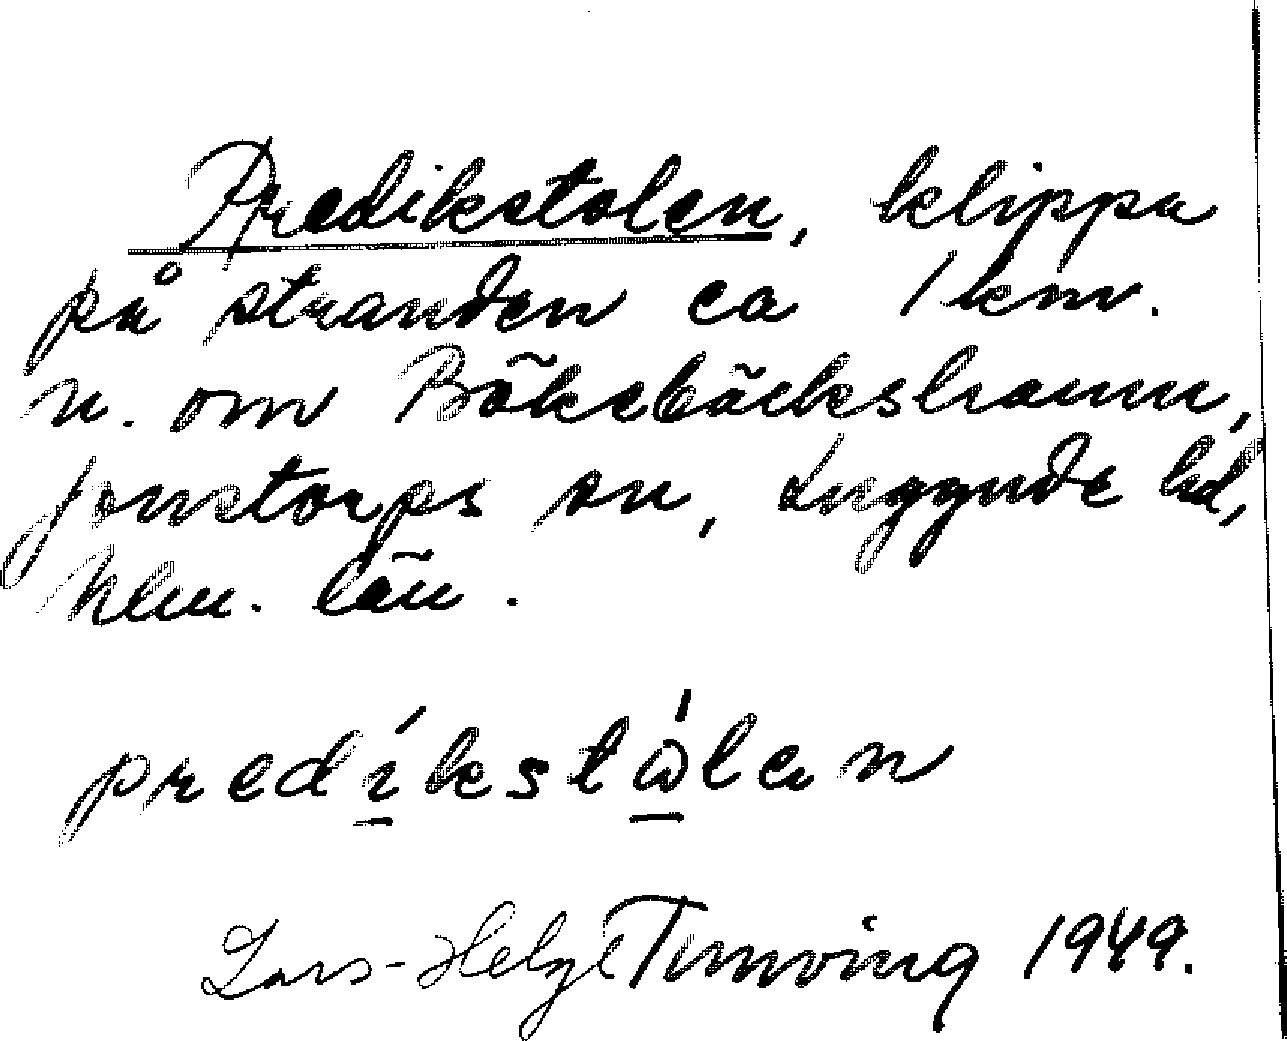 Predikstolen, klippa
på stranden ca 1 km.
n. om Bökebäckshamn,
Jonstorps sn, Luggude hd,
Mlm. län.
predíkstώ̱len
Lars-Helge Tunving 1949.